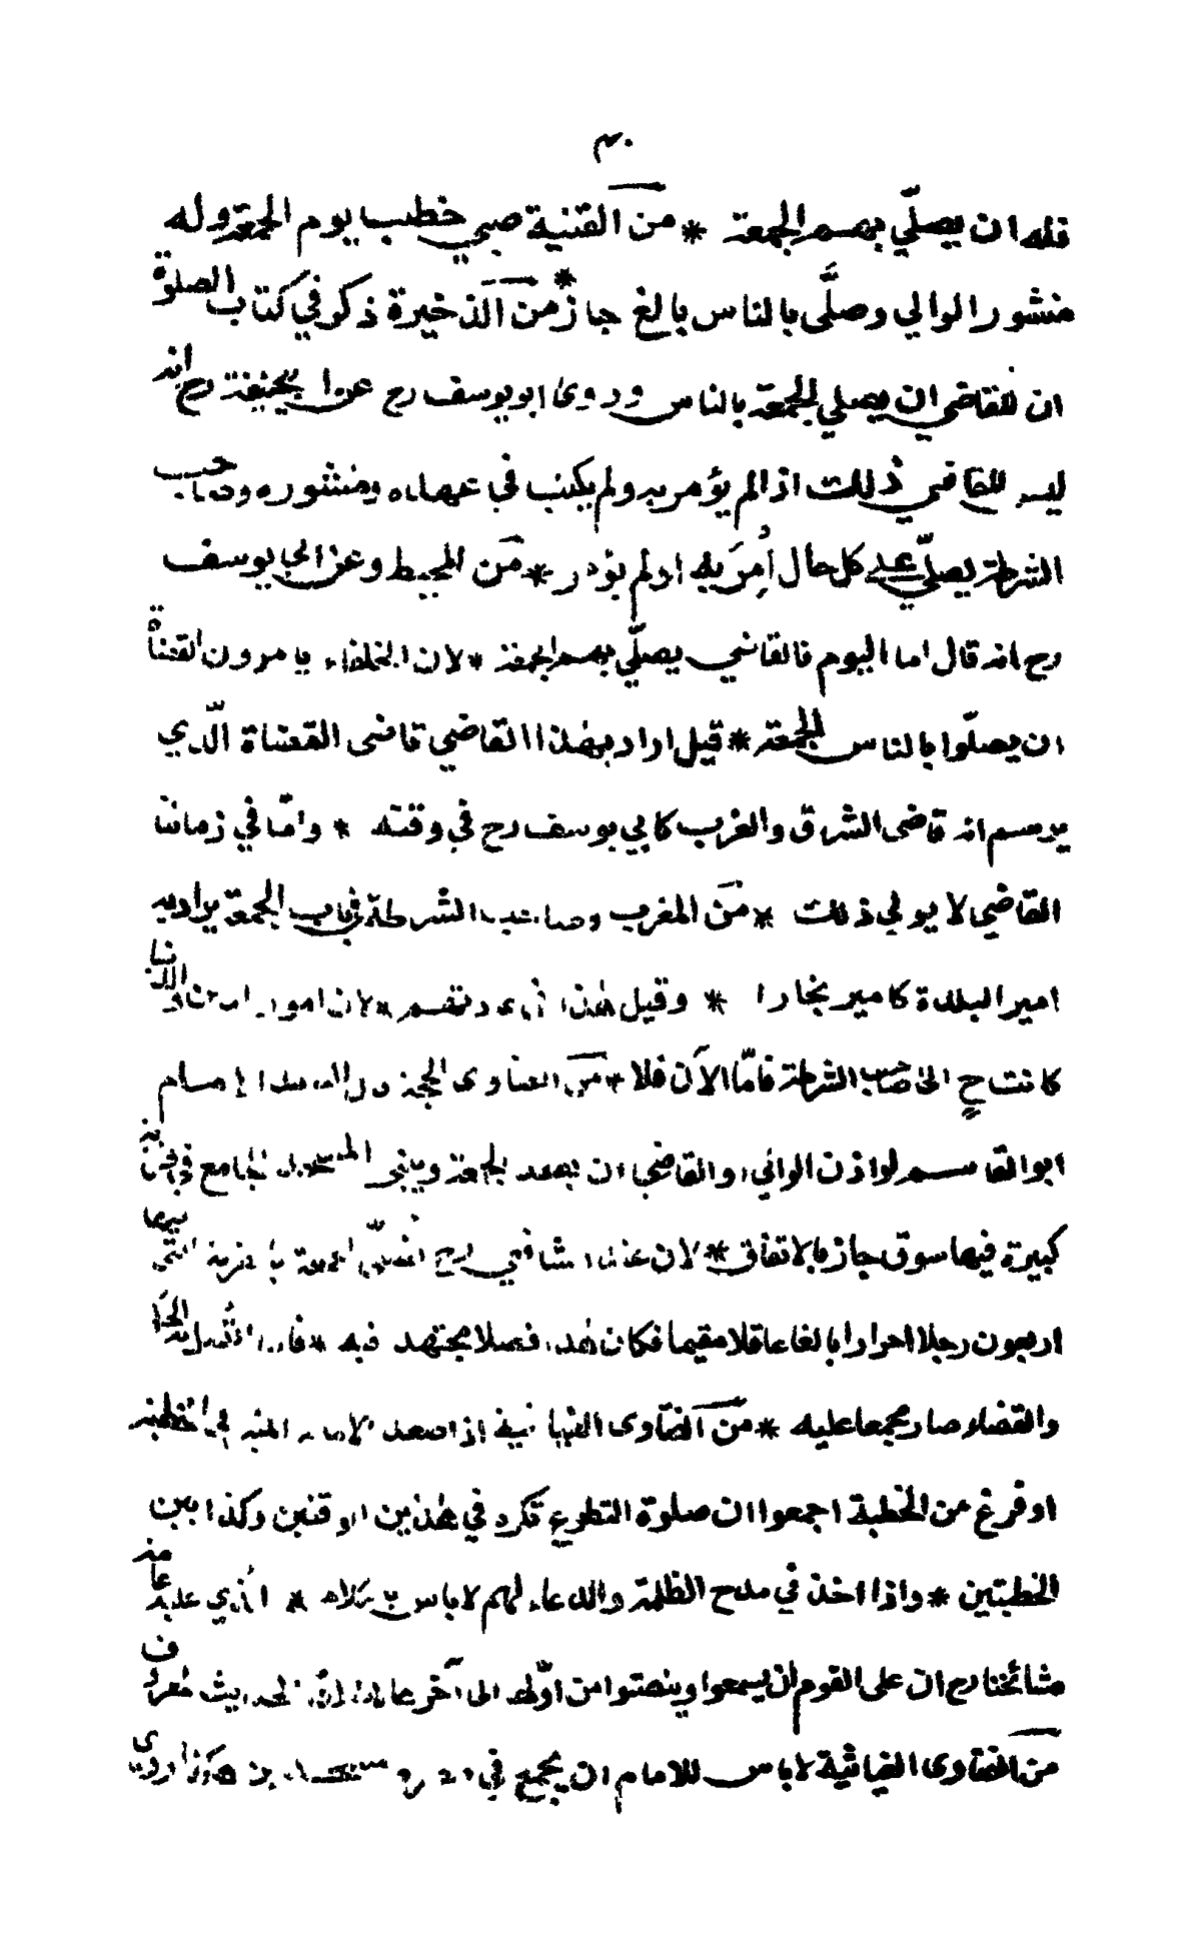 ٣٠
فله ان يصلّي بهم الجمعة * من القنية صبي خطب يوم الجمعة وله
منشور الوالي وصلَّى بالناس بالغ جاز * من الذخيرة ذكر في كتاب الصلوة
ان للقاضي ان يصلي الجمعة بالناس وروى ابو يوسف رح عن ابيحنيفة رح انه
ليس للقاضي ذلك اذا لم يؤمر به ولم يكتب في عهده ومنشوره وصاحب
الشرطة يصلّي على كل حال أُمِرَ به اولم يؤمر * من المحيط وعن ابي يوسف
رح انه قال اما اليوم فالقاضي يصلّي بهم الجمعة * لان الخلفاء يامرون القضاة
ان يصلّوا بالناس الجمعة * قيل اراد بهذا القاضي قاضى القضاة الّذي
يرسم انه قاضى الشرق والغرب كابي يوسف رح في وقته * وامّا في زماننا
القاضي لا يولي ذلك * من المغرب وصاحب الشرطة في باب الجمعة يراد به
امير البلدة كامير بخارا * وقيل هذا لان امور الدنيا
كانت ح الى صاحب الشرطة فامّا الآن فلا * من الفتاوى الحجة
ابو القاسم لو اذن الوالي او القاضي ان الجمعة ويبنى المسجد الجامع في قرية
كبيرة فيها سوق جاز بالاتفاق * لان عند الشافعي رح الجمعة فيها
اربعون رجلا احرارا بالغا عاقلا مقيما فكان هذا فصلا مجتهد فيه *
والقضاء صار مجمعا عليه * من الفتاوى الغياثية اذا صعد الامام المنبر للخطبة
او فرغ من الخطبة اجمعوا ان صلوة التطوع تكره في هذين الوقتين وكذا بين
الخطبتين * واذا اخذ في مدح الظلمة والدعاء لهم لاباس بالكلام * الذي عليه عامة
مشائخنا رح ان على القوم ان يسمعوا وينصتوا من اوّله الى آخره الحديث معروف
من الفتاوى الغياثية لا باس للامام ان يجمع في هكذا روي